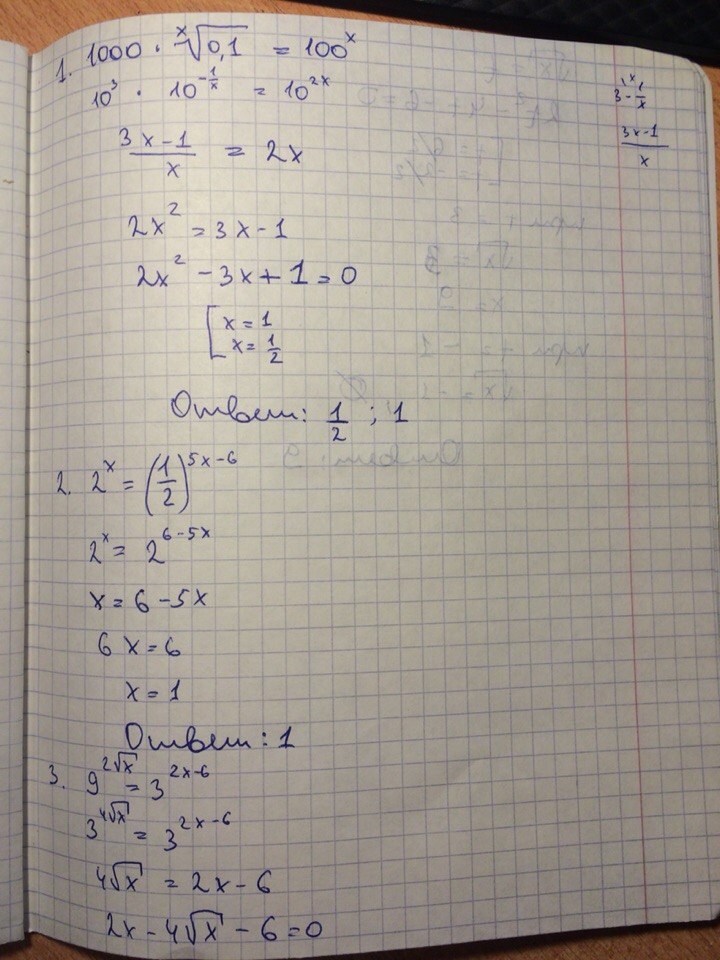 1. 1000 · ˣ√0,1 = 100ˣ
10³ · 10^(-1/x) = 10^(2x)
3 - 1/x
(3x-1)/x
(3x-1)/x = 2x
2x² = 3x-1
2x² - 3x + 1 = 0
[ x = 1
x = 1/2
Ответ: 1/2 ; 1
2. 2ˣ = (1/2)^(5x-6)
2ˣ = 2^(6-5x)
x = 6-5x
6x = 6
x = 1
Ответ: 1
3. 9^(2√x) = 3^(2x-6)
3^(4√x) = 3^(2x-6)
4√x = 2x-6
2x - 4√x - 6 = 0